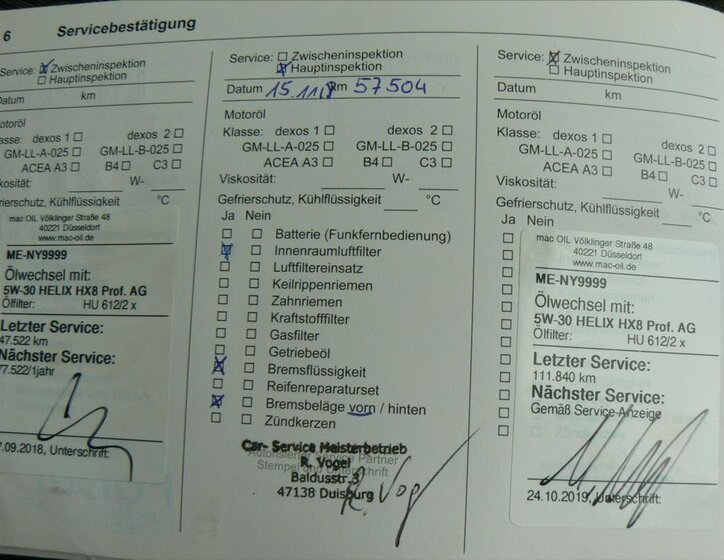 6 Servicebestätigung
Service: ☒ Zwischeninspektion
☐ Hauptinspektion
Datum km
Motoröl
Klasse: dexos 1 ☐ dexos 2 ☐
GM-LL-A-025 ☐ GM-LL-B-025 ☐
ACEA A3 ☐ B4 ☐ C3 ☐
Viskosität: W-
Gefrierschutz, Kühlflüssigkeit °C
mac OIL Völklinger Straße 48
40221 Düsseldorf
www.mac-oil.de
ME-NY9999
Ölwechsel mit:
5W-30 HELIX HX8 Prof. AG
Ölfilter: HU 612/2 x
Letzter Service:
47.522 km
Nächster Service:
77.522/1jahr
7.09.2018, Unterschrift:
Service: ☐ Zwischeninspektion
☒ Hauptinspektion
Datum 15.11.18 km 57504
Motoröl
Klasse: dexos 1 ☐ dexos 2 ☐
GM-LL-A-025 ☐ GM-LL-B-025 ☐
ACEA A3 ☐ B4 ☐ C3 ☐
Viskosität: W-
Gefrierschutz, Kühlflüssigkeit °C
Ja Nein
☐ ☐ Batterie (Funkfernbedienung)
☒ ☐ Innenraumluftfilter
☐ ☐ Luftfiltereinsatz
☐ ☐ Keilrippenriemen
☐ ☐ Zahnriemen
☐ ☐ Kraftstofffilter
☐ ☐ Gasfilter
☐ ☐ Getriebeöl
☒ ☐ Bremsflüssigkeit
☐ ☐ Reifenreparaturset
☒ ☐ Bremsbeläge vorn / hinten
☐ ☐ Zündkerzen
Car- Service Meisterbetrieb
Autorisierter Service Partner
R. Vogel
Stempel und Unterschrift
Baldusstr.3
47138 Duisburg
R. Vog
Service: ☒ Zwischeninspektion
☐ Hauptinspektion
Datum km
Motoröl
Klasse: dexos 1 ☐ dexos 2 ☐
GM-LL-A-025 ☐ GM-LL-B-025 ☐
ACEA A3 ☐ B4 ☐ C3 ☐
Viskosität: W-
Gefrierschutz, Kühlflüssigkeit °C
Ja Nein
mac OIL Völklinger Straße 48
40221 Düsseldorf
www.mac-oil.de
ME-NY9999
Ölwechsel mit:
5W-30 HELIX HX8 Prof. AG
Ölfilter: HU 612/2 x
Letzter Service:
111.840 km
Nächster Service:
Gemäß Service-Anzeige
24.10.2019, Unterschrift: